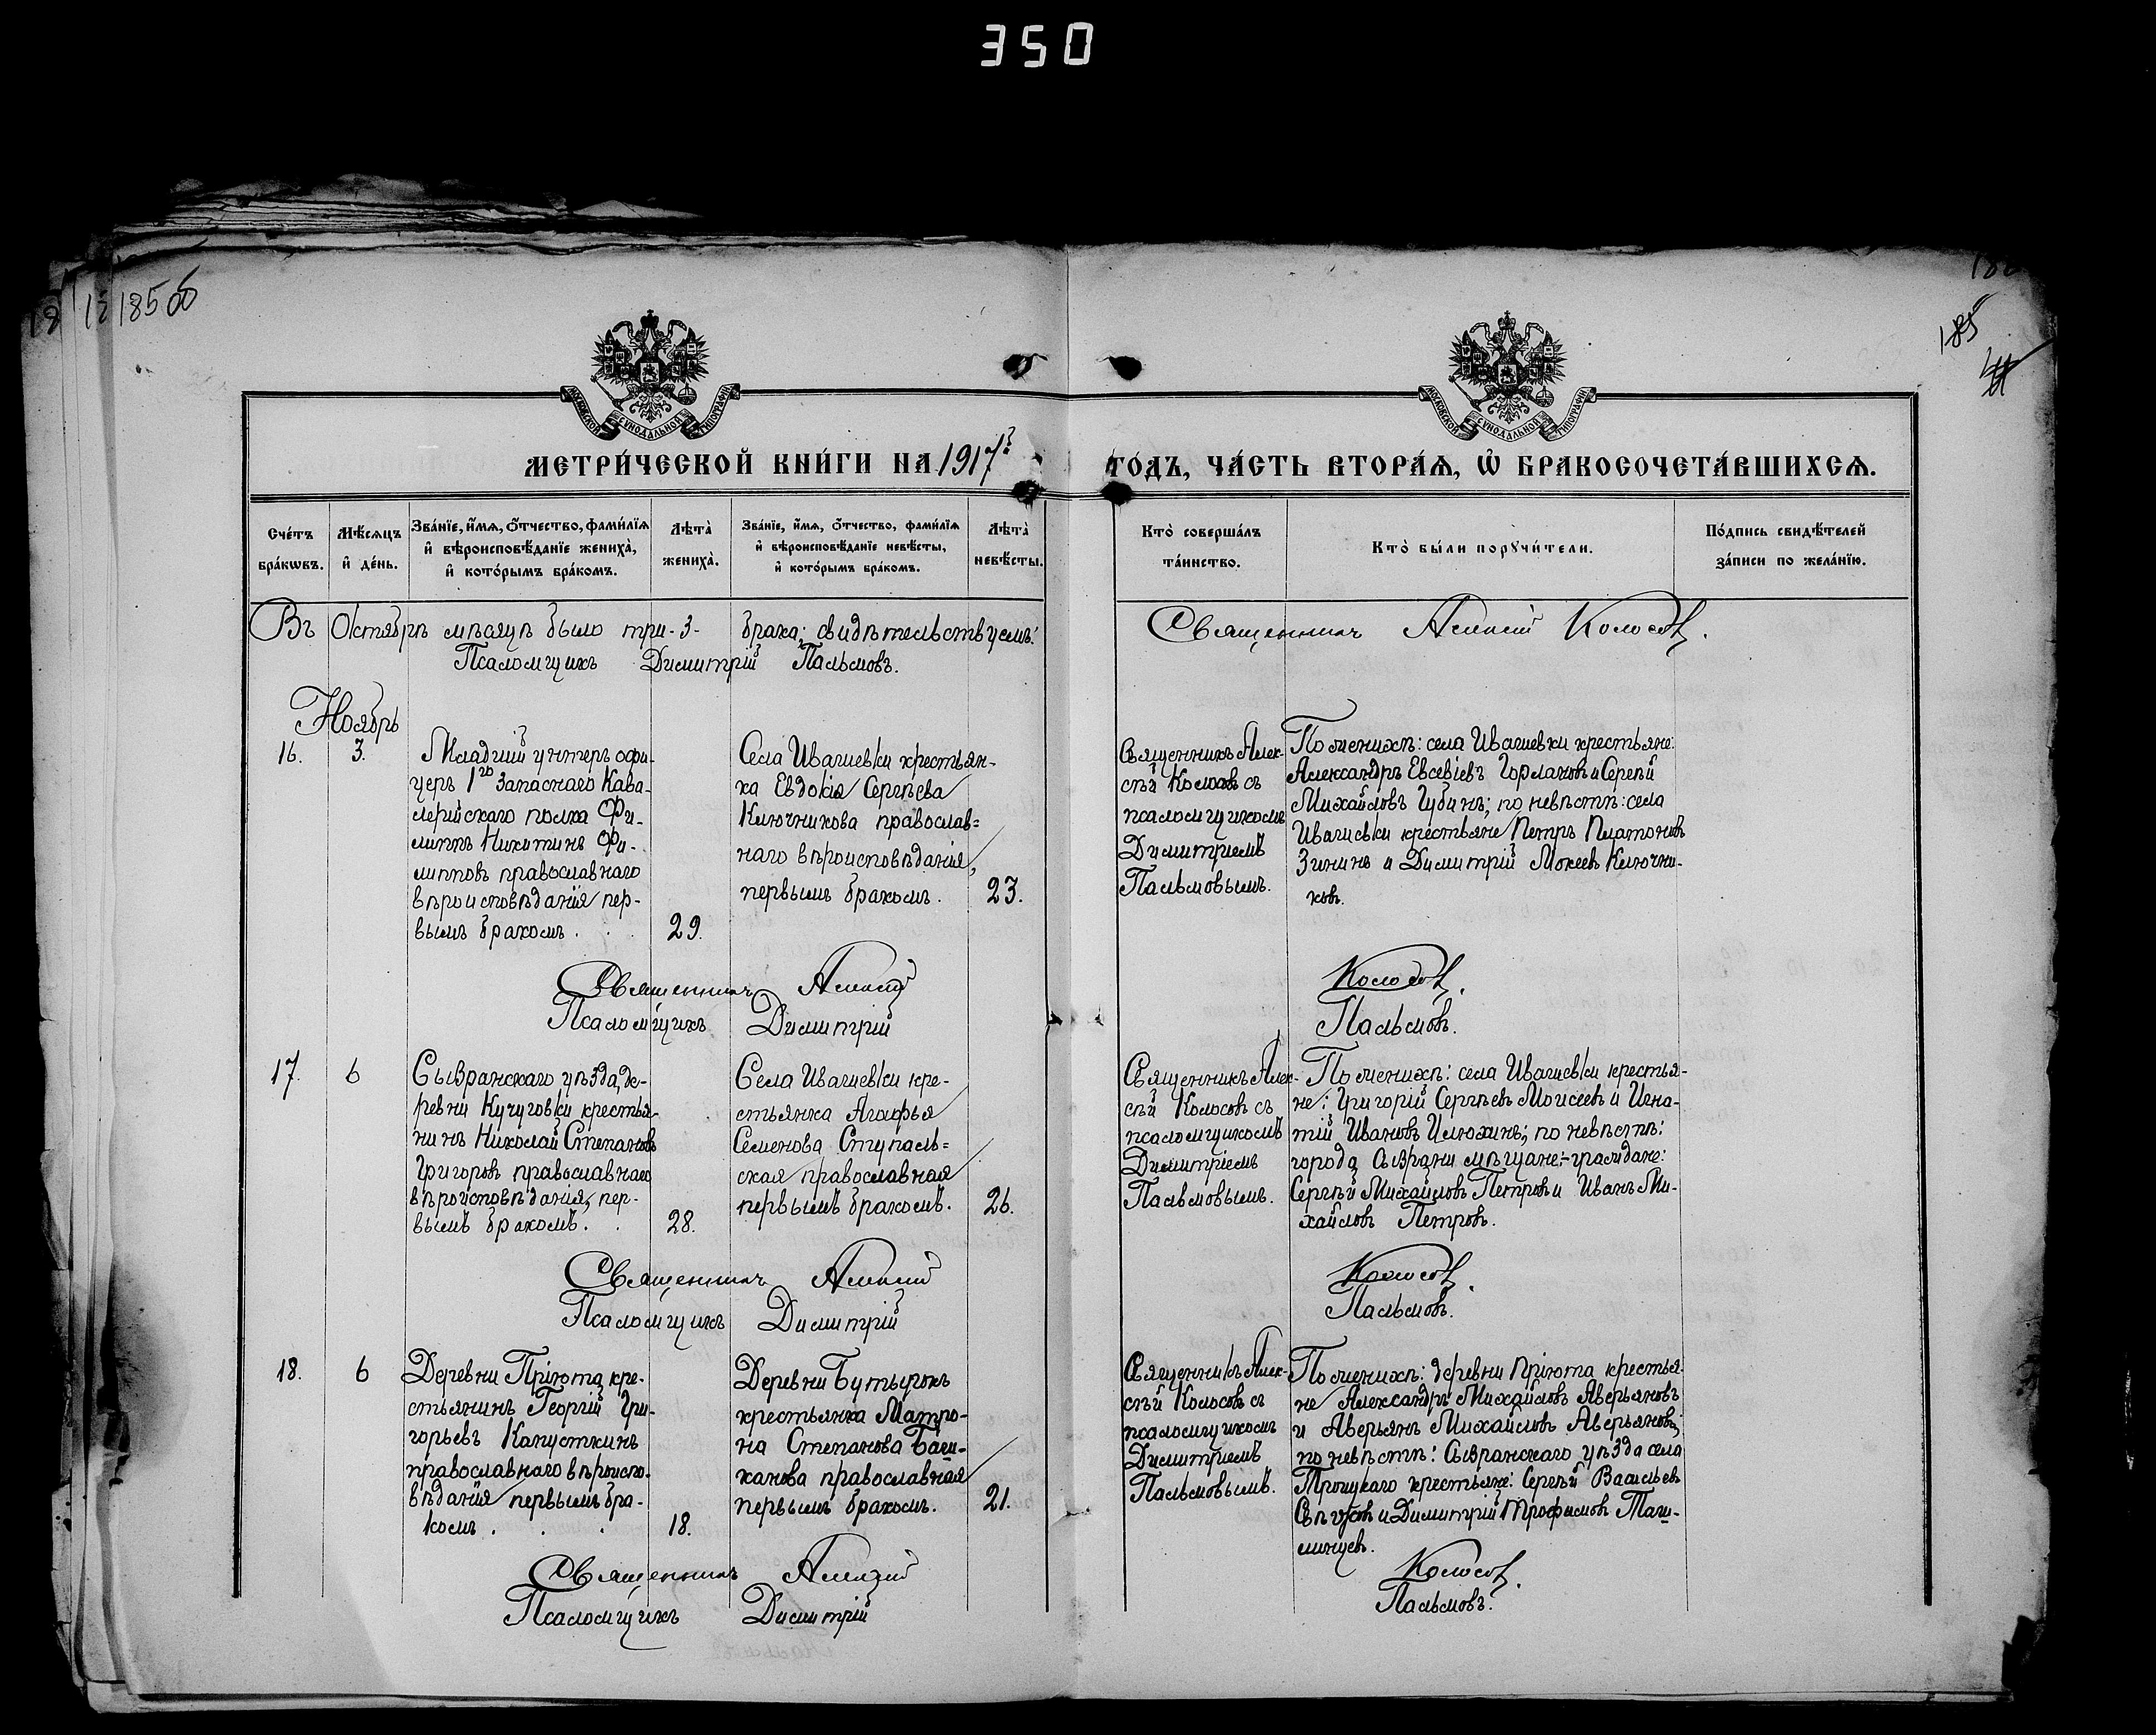 350
185об
185
МОСКОВСКОЙ СУНОДАЛЬНОЙ ТИПОГРАФІИ
МОСКОВСКОЙ СУНОДАЛЬНОЙ ТИПОГРАФІИ
МЕТРИ́ЧЕСКОЙ КНИ́ГИ НА 1917й
ГО́ДЪ, ЧА́СТЬ ВТОРА́Ѧ, Ѡ҆ БРАКОСОЧЕТА́ВШИХСѦ.
Сче́тъ
бра́кѡвъ.
Мѣ́сѧцъ
и҆ де́нь.
Зва́нїе, и҆́мѧ, ѻ҆́тчество, фами́лїѧ
и҆ вѣроисповѣ́данїе жениха̀,
и҆ кото́рымъ бра́комъ.
Лѣта̀
жениха̀.
Зва́нїе, и҆́мѧ, ѻ҆́тчество, фами́лїѧ
и҆ вѣроисповѣ́данїе невѣ́сты,
и҆ кото́рымъ бра́комъ.
Лѣта̀
невѣ́сты.
Кто̀ соверша́лъ
та́инство.
Кто̀ бы́ли порꙋчи́тели.
По́дпись свидѣ́телей
за́писи по жела́нїю.
Въ Октябрѣ мѣсяцѣ было три -3- брака; свидѣтельствуемъ:
Священникъ Алексій Колосовъ.
Псаломщикъ Димитрій Пальмовъ.
Ноябрь
16.
3.
Младшій унтеръ офи-
церъ 1го Запаснаго Кава-
лерійскаго полка Фи-
липпъ Никитинъ Фи-
липповъ православнаго
вѣроисповѣданія, пер-
вымъ бракомъ.
29.
Села Ивашевки крестьян-
ка Евдокія Сергѣева
Ключникова православ=
наго вѣроисповѣданія,
первымъ бракомъ.
23.
Священникъ Алек-
сѣй Колосовъ съ
псаломщикомъ
Димитріемъ
Пальмовымъ.
По женихѣ: села Ивашевки крестьяне:
Александръ Евсевіевъ Горлановъ и Сергѣй
Михайловъ Губинъ; по невѣстѣ: села
Ивашевки крестьяне Петръ Платоновъ
Зининъ и Димитрій Мокеевъ Ключни-
ковъ.
Священникъ Алексій Колосовъ.
Псаломщикъ Димитрій Пальмовъ.
17.
6
Сызранскаго уѣзда, де-
ревни Кучуговки крестья-
нинъ Николай Степановъ
Григоровъ православнаго
вѣроисповѣданія, пер-
вымъ бракомъ.
28.
Села Ивашевки кре-
стьянка Агафья
Семенова Ступаль=
ская православная
первымъ бракомъ.
26.
Священникъ Алек-
сѣй Колосовъ съ
псаломщикомъ
Димитріемъ
Пальмовымъ.
По женихѣ: села Ивашевки крестья-
не: Григорій Сергѣевъ Моисеевъ и Игна-
тій Ивановъ Илюхинъ; по невѣстѣ:
города Сызрани мѣщане-граждане:
Сергѣй Михайловъ Петровъ и Иванъ Ми-
хайловъ Петровъ.
Священникъ Алексій Колосовъ.
Псаломщикъ Димитрій Пальмовъ.
18.
6
Деревни Пріюта, кре-
стьянинъ Георгій Гри-
горьевъ Капусткинъ
православнаго вѣроиспо-
вѣданія первымъ бра-
комъ.
18.
Деревни Бутырокъ
крестьянка Матро-
на Степанова Баш-
канова православная
первымъ бракомъ.
21.
Священникъ Алек-
сѣй Колосовъ съ
псаломщикомъ
Димитріемъ
Пальмовымъ.
По женихѣ: деревни Пріюта крестья-
не Александръ Михайловъ Аверьяновъ
и Аверьянъ Михайловъ Аверьяновъ;
по невѣстѣ: Сызранскаго уѣзда села
Троицкаго крестьяне: Сергѣй Васильевъ
и Димитрій Трофимовъ Таш-
линцевъ.
Священникъ Алексій Колосовъ.
Псаломщикъ Димитрій Пальмовъ.